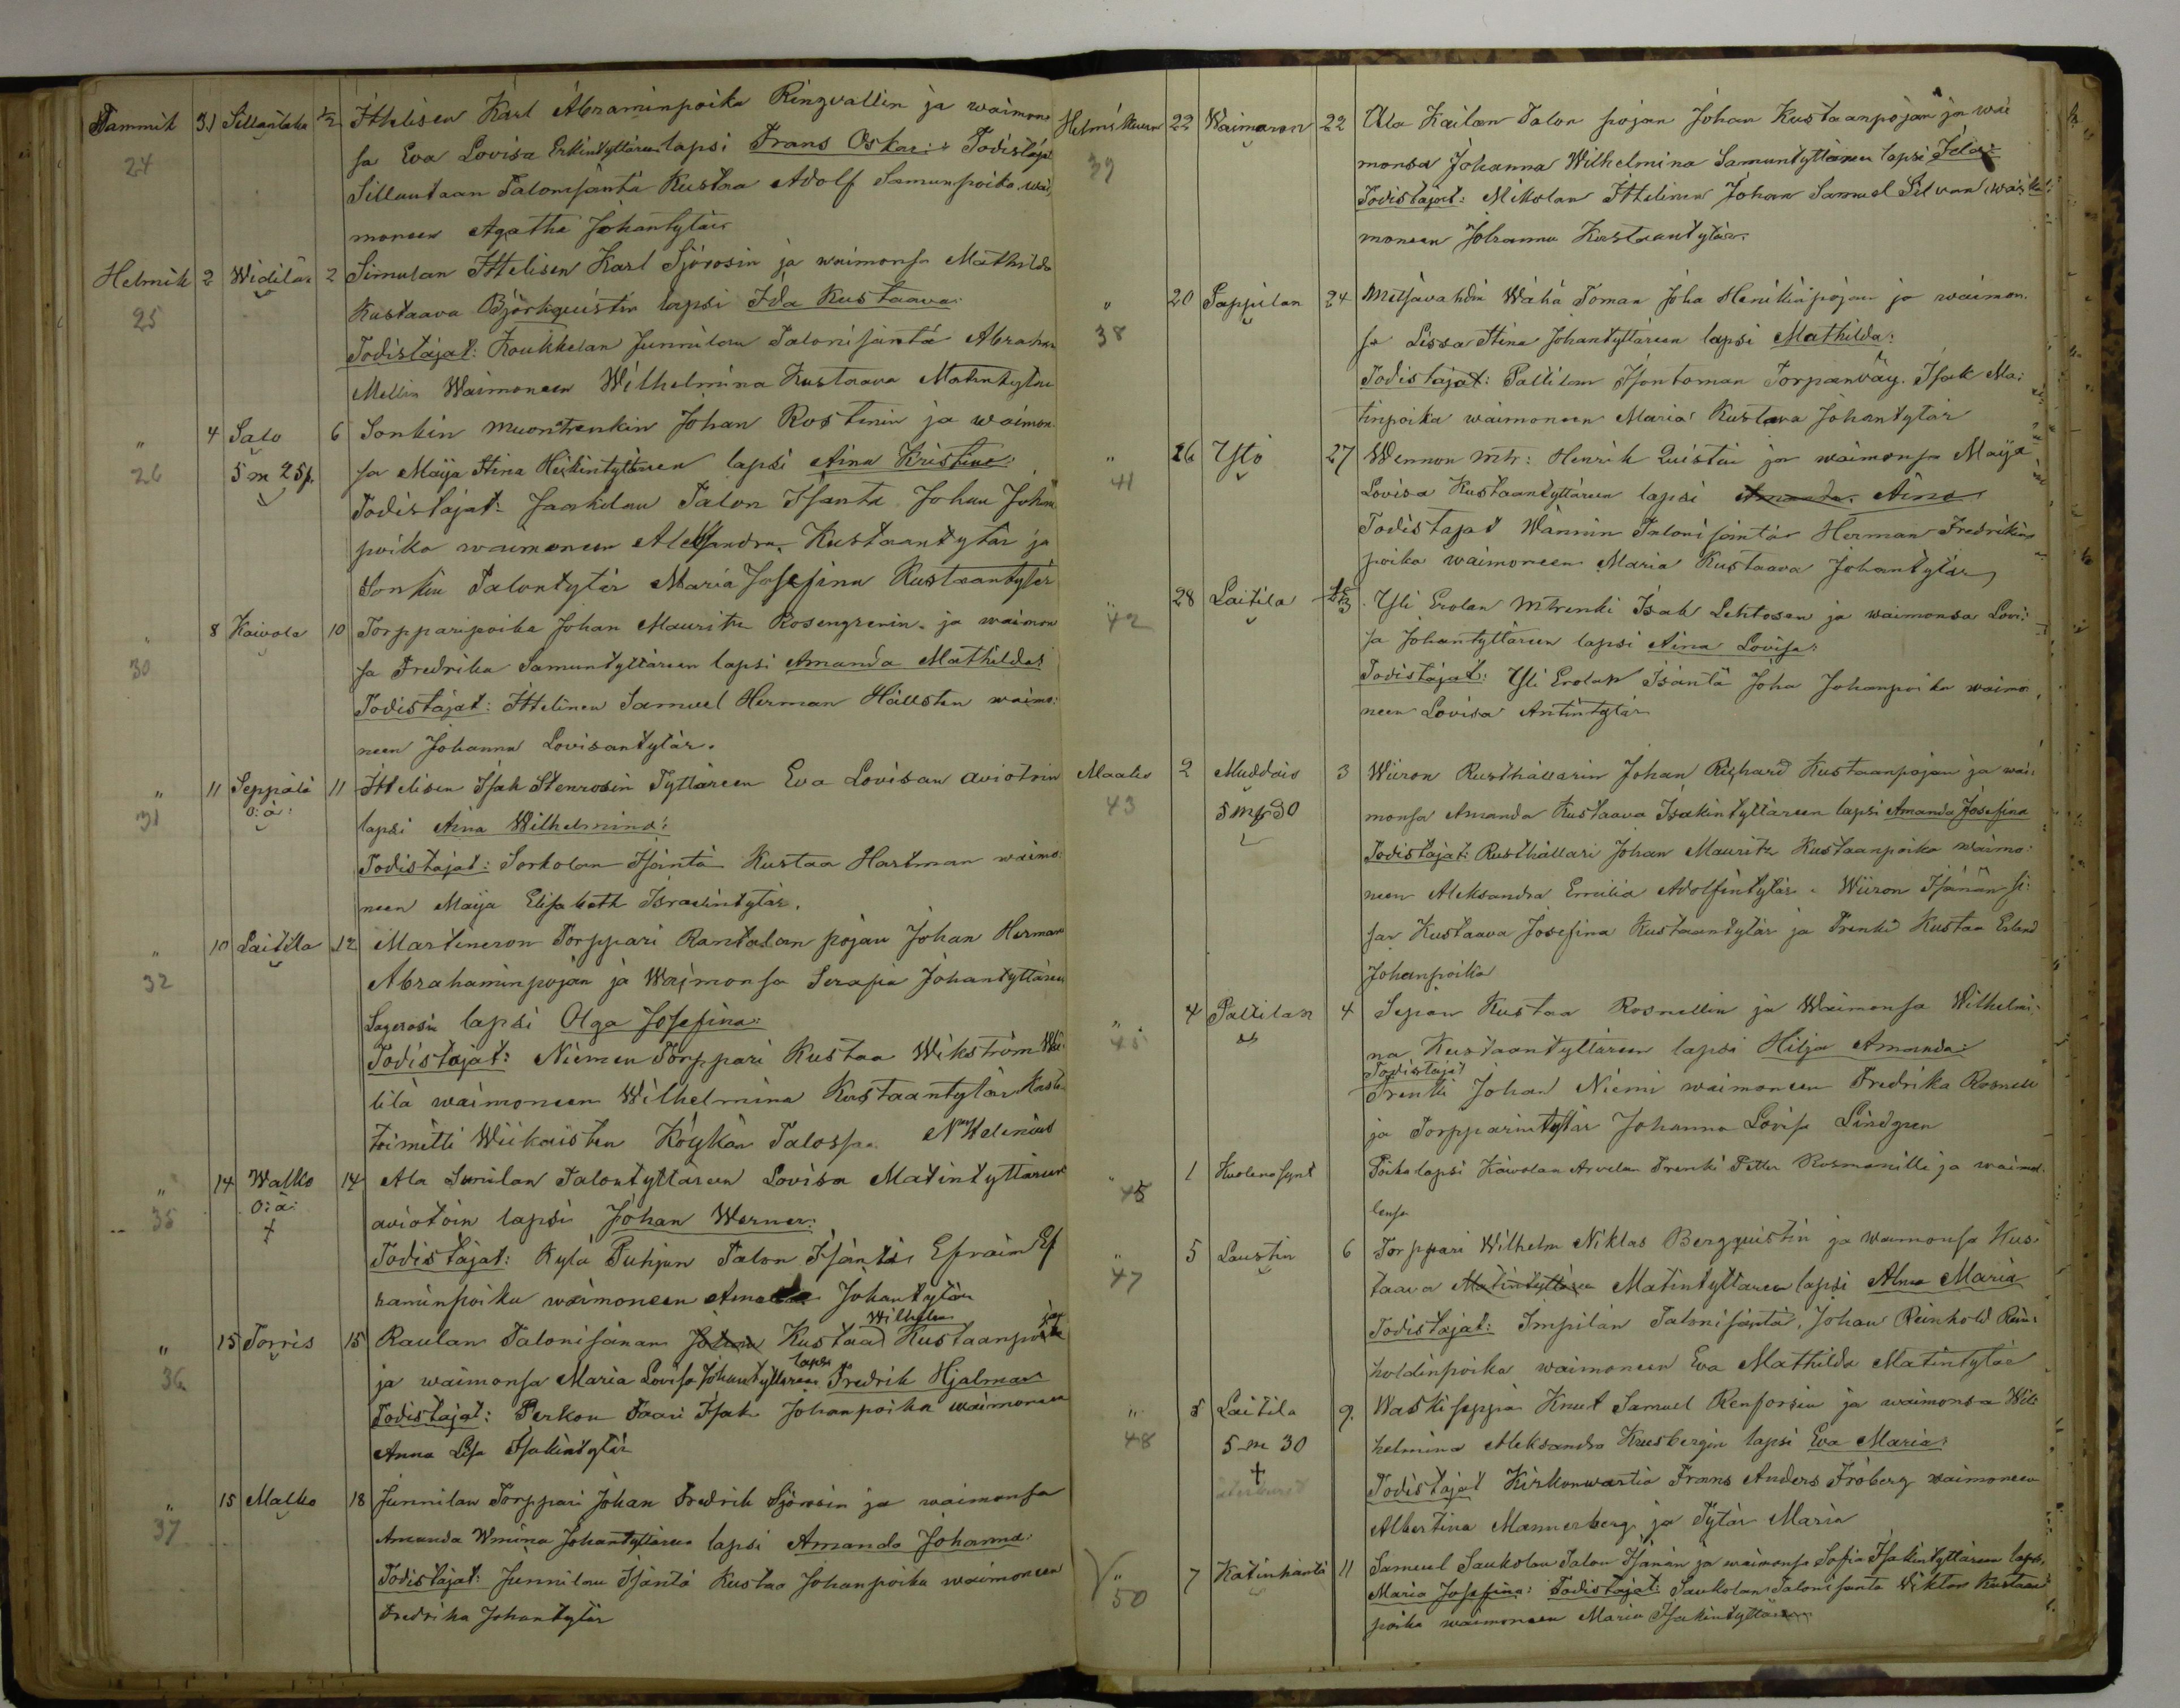 Tammik 31 Sillantaka 1/2 Ittelisen Karl Abraminpoika Ringvallin ja waimon
24 sa Eva Lovisa Erkintyttären lapsi Frans Oskar: Todistajat
Sillantaan Talonisäntä Kustaa Adolf Samunpoika wai,
moneen Agatha Johantytär
Helmik 2 Widilän 2 Simulan Ittelisen Karl Sjörosin ja waimonsa Mathilda
25 Kustaava Björkquistin lapsi Ida Kustaava:
Todistajat: Koukkelan Junnilan Talonisäntä Abraham
Mellin Waimoneen Wilhelmina Kustaava Matintytär
" 4 Salo 6 Sonkin muonatrenkin Johan Rostinin ja waimon
26 5 m 25 p. sa Maija Stina Heikintyttären lapsi Aina Kristina:
Todistajat: Jaakolan Talon Isäntä Johan Johan
poika waimoneen Aleksandra Kustaantytär ja
Sonkin Talontytär Maria Josefina Kustaantytär
" 8 Kaivola 10 Torpparipoika Johan Mauritz Rosengrenin ja waimon
30 sa Fredrika Samuntyttären lapsi Amanda Mathilda:
Todistajat: Ittelinen Samuel Herman Hällsten waimo:
neen Johanna Lovisantytär.
" 11 Seppälä 11 Ittelisen Isak Stenrosin Tyttären Eva Lovisan aviotoin
31 o: ä: lapsi Aina Wilhelmina:
Todistajat: Sorkolan Isäntä Kustaa Hartman waimo:
neen Maija Elisabeth Israelintytär.
" 10 Laitila 12 Martineron Torppari Rantalan pojan Johan Herman
32 Abrahaminpojan ja Waimonsa Serafia Johantyttären
Lagerosin lapsi Olga Josefina:
Todistajat: Niemen Torppari Kustaa Wikström
lilä waimoneen Wilhelmina Kustaantytär
toimitti Wiikaisten Köykän Talossa. Helenius
" 14 Walko 14 Ala Junilan Talontyttären Lovisa Matintyttären
35 o: ä: aviotoin lapsi Johan Werner:
+ Todistajat: Kylä Puhjun Talon Isäntä Efraim Ef
raminpoika waimoneen Amanda Johantytär
Wilhelm
" 15 Torris 15 Raulan Talonisänän Johan Kustaa Kustaanpojan
36 ja waimonsa Maria Lovisa Johantyttären lapsi Fredrik Hjalmar
Todistajat: Perkon Faari Isak Johanpoika waimoneen
Anna Lisa Isakintytär
" 15 Malko 18 Junnilan Torppari Johan Fredrik Sjörosin ja waimonsa
37 Amanda Wmina Johantyttären lapsi Amanda Johanna:
Todistajat: Junnilan Isäntä Kustaa Johanpoika waimoneen
Fredrika Johantytär
Helmikuun 22 Waimaron 22 Ala Kailan Talon pojan Johan Kustaanpojan ja wai
39 monsa Johanna Wilhelmina Samuntyttären lapsi Ida:
Todistajat: Mikolan Ittelinen Johan Samuel Silvan wai
moneen Johanna Kustaantytär.
" 20 Pappilan 24 Metsävahdin Wähä Toman Joha Henrikinpojan ja waimon.
38 sa Lissa Stina Johantyttären lapsi Mathilda:
Todistajat: Pallilan Isontoman Torpanväy. Isak Ma:
tinpoika waimoneen Maria Kustava Johantytär
" 26 Ystö 27 Wennon mtr: Henrik Quistin ja waimonsa Maija
41 Lovisa Kustaantyttären lapsi Amanda. Aina
Todistajat Wännin Talonisäntä Herman Fredrikin
poika waimoneen Maria Kustaava Johantytär
" 28 Laitila Yli Erolan Mtrenki Isak Lehtosen ja waimonsa Lovi:
42 sa Johantyttären lapsi Aina Lovisa:
Todistajat: Yli Erolan Isäntä Joha Johanpoika waimo
neen Lovisa Antintytär
Maalis 2 Muddais 3 Wiiron Rusthållarin Johan Richard Kustaanpojan ja wai:
43 5 mk 30 monsa Amanda Kustaava Isakintyttären lapsi Amanda Josefina
Todistajat: Rusthållari Johan Mauritz Kustaanpoika waimo:
neen Aleksandra Emilia Adolfintytär. Wiiron Isänän si:
sar Kustaava Josefina Kustaantytär ja Trenki Kustaa Erland
Johanpoika
" 4 Pallilan 4 Sepän Kustaa Rosnellin ja Waimonsa Wilhelmi:
45 na Kustaantyttären lapsi Hilja Amanda:
Todistajat
Trenki Johan Niemi waimoneen Fredrika Rosnell
ja Torpparintytär Johanna Lovisa Lindgren
" 1 Kuolena synt Poika lapsi Kaivolan Arvelan Trenki Petter Rosmanille ja waimol
45 lensa
" 5 Laustin 6 Torppari Wilhelm Niklas Bergquistin ja waimonsa Kus:
47 taava Matintyttären Matintyttären lapsi Alma Maria
Todistajat: Impilän Talonisäntä, Johan Reinhold Rein:
holdinpoika waimoneen Eva Mathilda Matintytär
" 8 Laitila 9. Waskiseppä Knut Samuel Renforsin ja waimonsa Wil:
48 5 m 30 helmina Aleksandra Krusbergin lapsi Eva Maria:
+ Todistajat Kirkonwartia Frans Anders Fröberg waimoneen
Albertina Mannerberg ja Tytär Maria
" 7 Katinhäntä 11 Samuel Saukolan Talon Isänän ja waimonsa Sofia Isakintyttären lapsi
50 Maria Josefina: Todistajat: Saukolan Talonisäntä Wiktor Kustaan
poika waimoneen Maria Isakintyttären